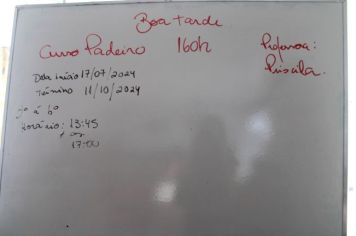 Boa tarde
Curso Padeiro 160h
Professora:
Priscila.
Data início 17/07/2024
Término 11/10/2024
2º á 6º
Horário: 13:45
às
17:00